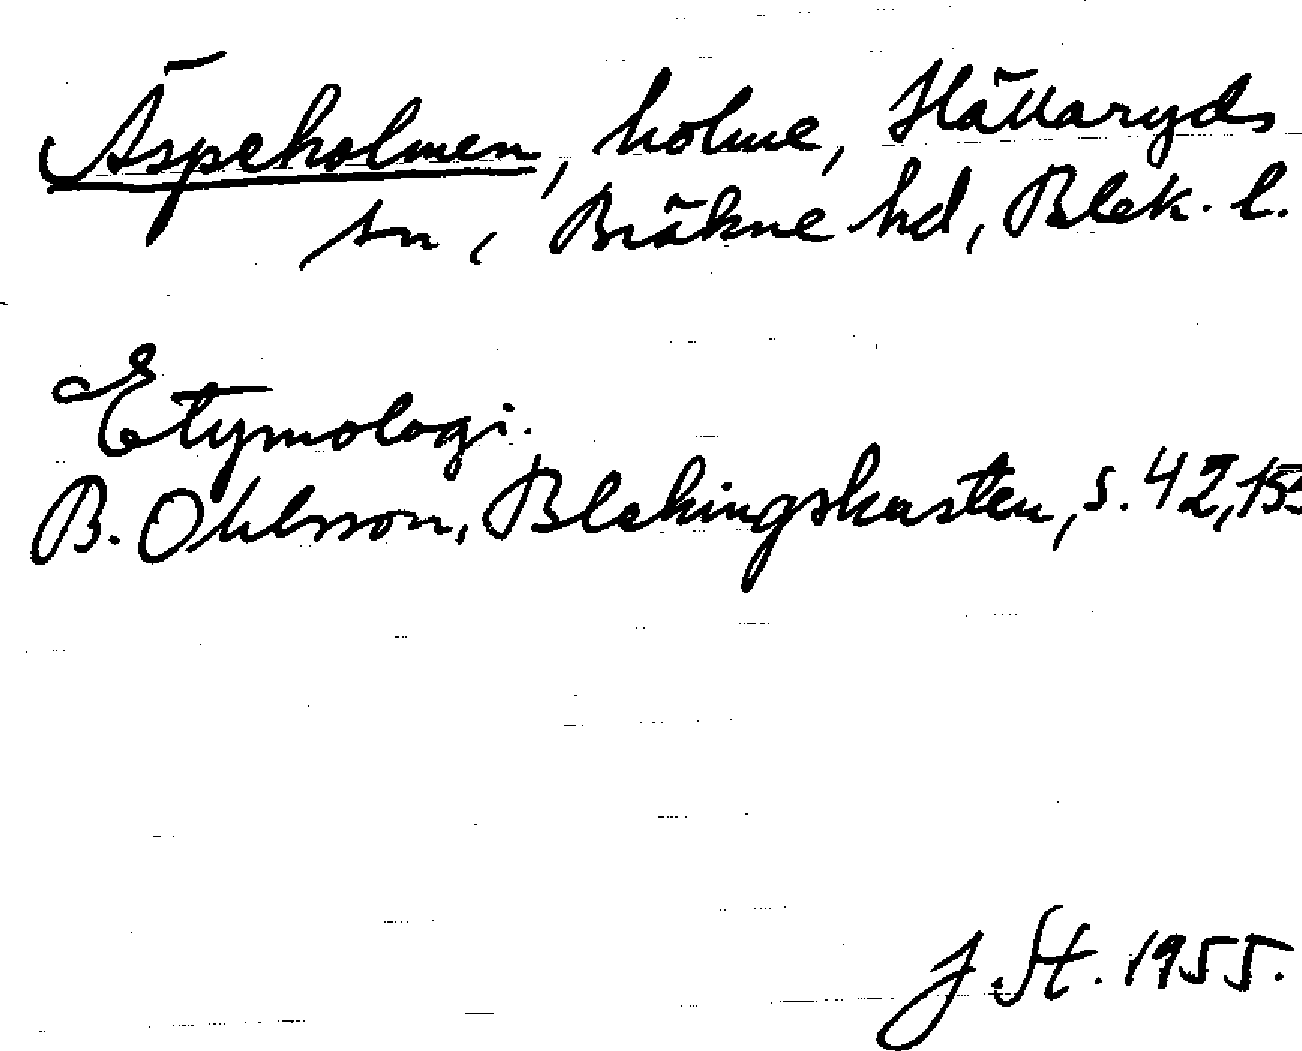 Äspeholmen, holme, Hällaryds
sn, Bräkne hd, Blek. l.
Etymologi.
B. Ohlsson, Blekingskusten, s. 42, 155
J. St. 1955.